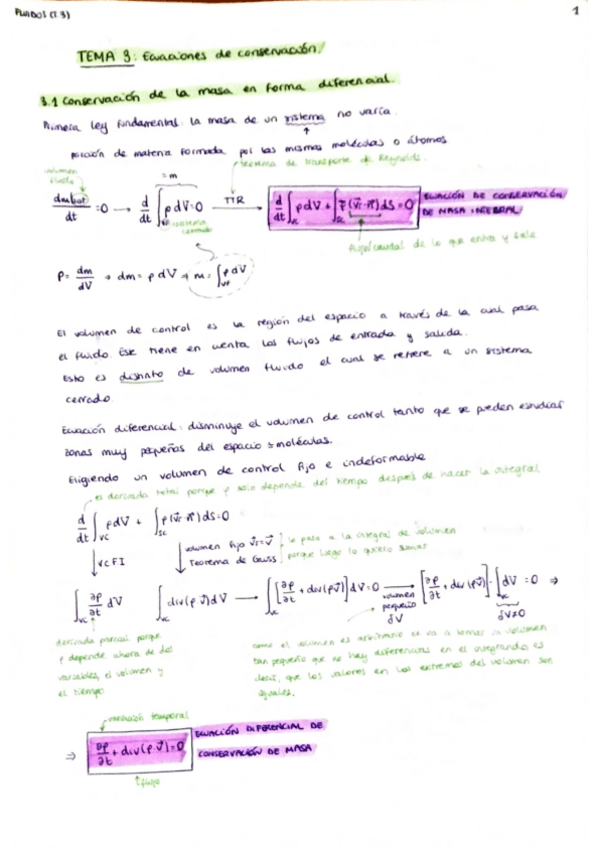 FLUIDOS (T.3)
1
TEMA 3: Ecuaciones de conservación
3.1 Conservación de la masa en forma diferencial.
Primera ley fundamental: la masa de un sistema no varía.
porción de materia formada por las mismas moléculas o átomos
teorema de transporte de Reynolds.
volumen
fluido
= m
dt = 0 → d/dt ∫ ρ dV = 0 TTR → d/dt ∫vc ρ dV + ∫sc ρ (v⃗r·n⃗) dS = 0 ECUACIÓN DE CONSERVACIÓN
DE MASA INTEGRAL
sistema
cerrado
flujo/caudal de lo que entra y sale
ρ = dm/dV → dm = ρ dV → m = ∫vf ρ dV
El volumen de control es la región del espacio a través de la cual pasa
el fluido. Este tiene en cuenta los flujos de entrada y salida.
Esto es distinto de volumen fluido el cual se refiere a un sistema
cerrado.
Ecuación diferencial: disminuye el volumen de control tanto que se pueden estudiar
zonas muy pequeñas del espacio ≠ moléculas.
Eligiendo un volumen de control fijo e indeformable
es derivada total porque ρ solo depende del tiempo después de hacer la integral
d/dt ∫vc ρ dV + ∫sc ρ (v⃗r·n⃗) dS = 0
VCFI
volumen fijo v⃗r = v⃗
Teorema de Gauss
lo paso a la integral de volumen
porque luego lo quiero sumar
∫vc ∂ρ/∂t dV ∫vc div(ρ·v⃗) dV → ∫vc [∂ρ/∂t + div(ρv⃗)] dV = 0 → [∂ρ/∂t + div(ρv⃗)]·∫vc dV = 0 ⇒
volumen
pequeño
δV
δV≠0
derivada parcial porque
ρ depende ahora de dos
variables, el volumen y
el tiempo
como el volumen es arbitrario se va a tomar un volumen
tan pequeño que no hay diferencias en el integrando, es
decir, que los valores en los extremos del volumen son
iguales.
variación temporal
⇒ ∂ρ/∂t + div(ρ·v⃗) = 0 ECUACIÓN DIFERENCIAL DE
CONSERVACIÓN DE MASA
flujo